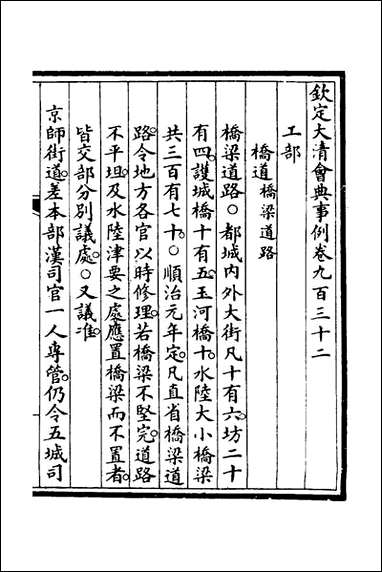 欽定大清會典事例卷九百三十二
工部
橋道橋梁道路
橋梁道路〇都城内外大街凡十有六坊二十
有四護城橋十有五玉河橋十水陸大小橋梁
共三百有七十〇順治元年定凡直省橋梁道
路令地方各官以時修理若橋梁不堅完道路
不平坦及水陸津要之處應置橋梁而不置者
皆交部分別議處〇又議准
京師街道差本部漢司官一人專管仍令五城司